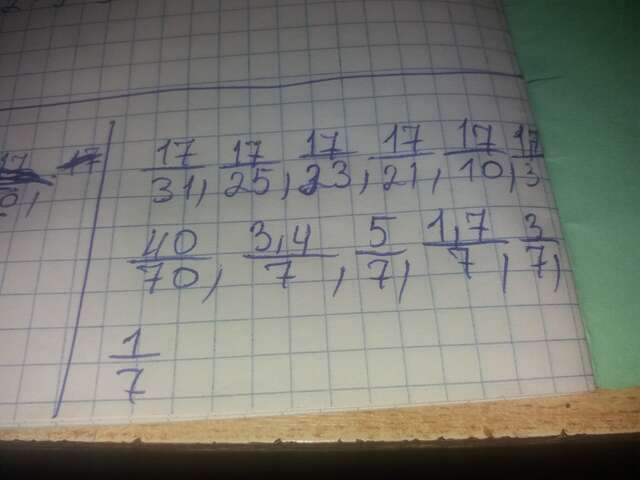 17/31, 17/25, 17/23, 17/21, 17/10, 17/3
40/70, 3,4/7, 5/7, 1,7/7, 3/7,
1/7